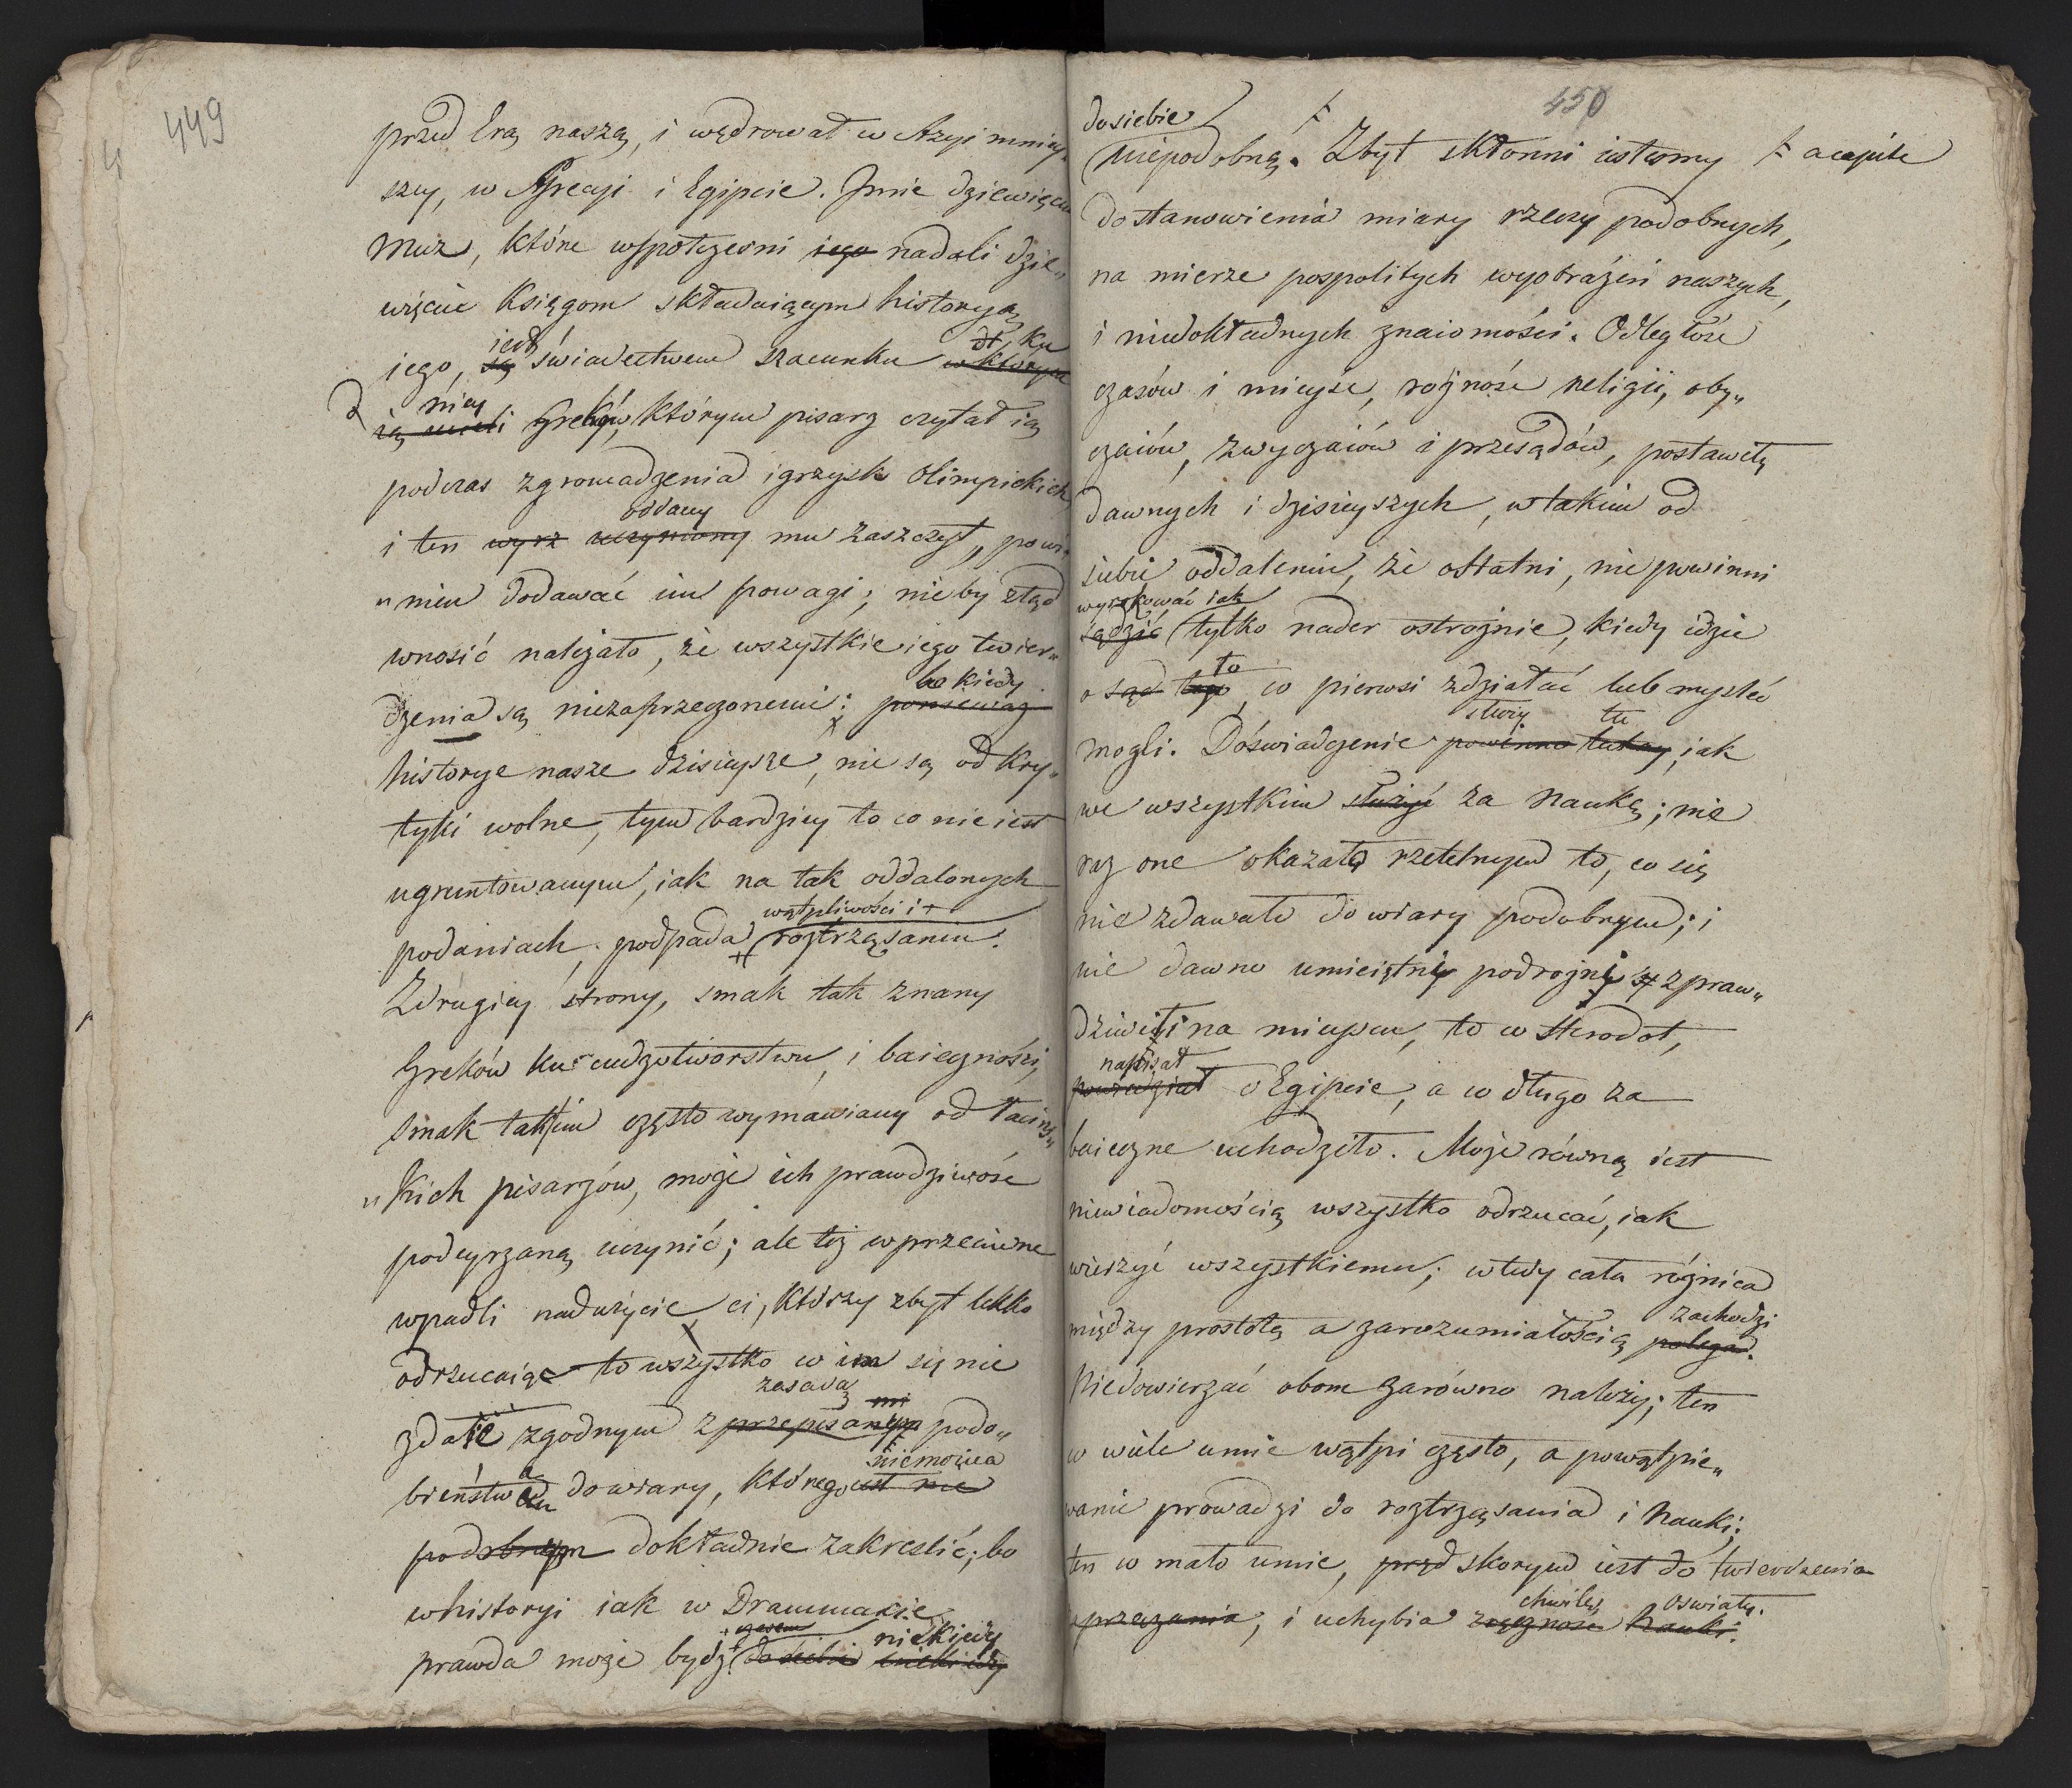 449
przed Erą naszą, i wędrował w Azyi mniey„
szey, w Grecyi i Egipcie. Jmie dziewięciu
Muz, które wspołcześni iego nadali dzie„
więciu Księgom składaiącym historyą
iest ku
iego, są świadectwem szacunku w którym
niey
ią mieli Greków, którym pisarz czytał ią
podczas zgromadzenia igrzysk Olimpickich,
oddany
i ten wyrz uczyniony mu zaszczyt, powi„
„nien dodawać im powagi; nie by ztąd
wnosić należało, że wszystkie iego twier„
bo kiedy
dzenia są niezaprzeczonemi; ponieważ
historye nasze dzisieysze, nie są od kry„
tyki wolne, tym bardziey to co nie iest
ugruntowanym, iak na tak oddalonych
wątpliwości i +
podaniach, podpada roztrząsaniu.
Z drugiey strony, smak tak znany
Greków ku cudzotworstwu, i baieczności,
smak takim często wymawiany od łaciń„
„kich pisarzów, może ich prawdziwość
podeyrzaną uczynić; ale też w przeciwne
wpadli nadużycie ci, którzy zbyt lekko
odrzucaią to wszystko co im się nie
zasadą mi
zdaie zgodnym z przepisanym podo„
a niemożna
bieństwem do wiary, którego iest nie
podobnym dokładnie zakreslić; bo
w historyi iak w Drammacie
+ czasem niekiedy
prawda może bydź do siebie niekiedy
450
do siebie
niepodobną. Zbyt skłonni iesteśmy ⁒ a capite
do stanowienia miary rzeczy podobnych,
na mierze pospolitych wyobrażeń naszych,
i niedokładnych znaiomości. Odległość
czasów i mieysc, rożność religii, oby„
czaiów, zwyczaiów i przesądów, postawiły
dawnych i dzisieyszych, w takim od
siebie oddaleniu, że ostatni, nie powinni
wyrokować iak
sądzić tylko nader ostrożnie, kiedy idzie
to
o sąd tego, co pierwsi zdziałać lub myśleć
służy tu
mogli. Doświadczenie powinno tutay, iak
we wszystkim służyć za naukę; nie
raz one okazało rzetelnym to, co się
nie zdawało do wiary podobnym; i
nie dawno umieiętni podrożni sp zpraw„
dziwili na mieyscu, to co Herodot,
napisał
powiedział o Egipcie, a co długo za
baieczne uchodziło. Może równą iest
niewiadomością wszystko odrzucać, iak
wierzyć wszystkiemu; wtedy cała różnica
zachodzi
między prostotą a zarozumiałością polega.
Niedowierzać obom zarówno należy; ten
co wiele umie wątpi często, a powątpie„
wanie prowadzi do roztrząsania i nauki;
ten co mało umie, pręd skorym iest do twierdzenia
chwilę oswiaty.
przeczenia, i uchybia zręczność nauki.